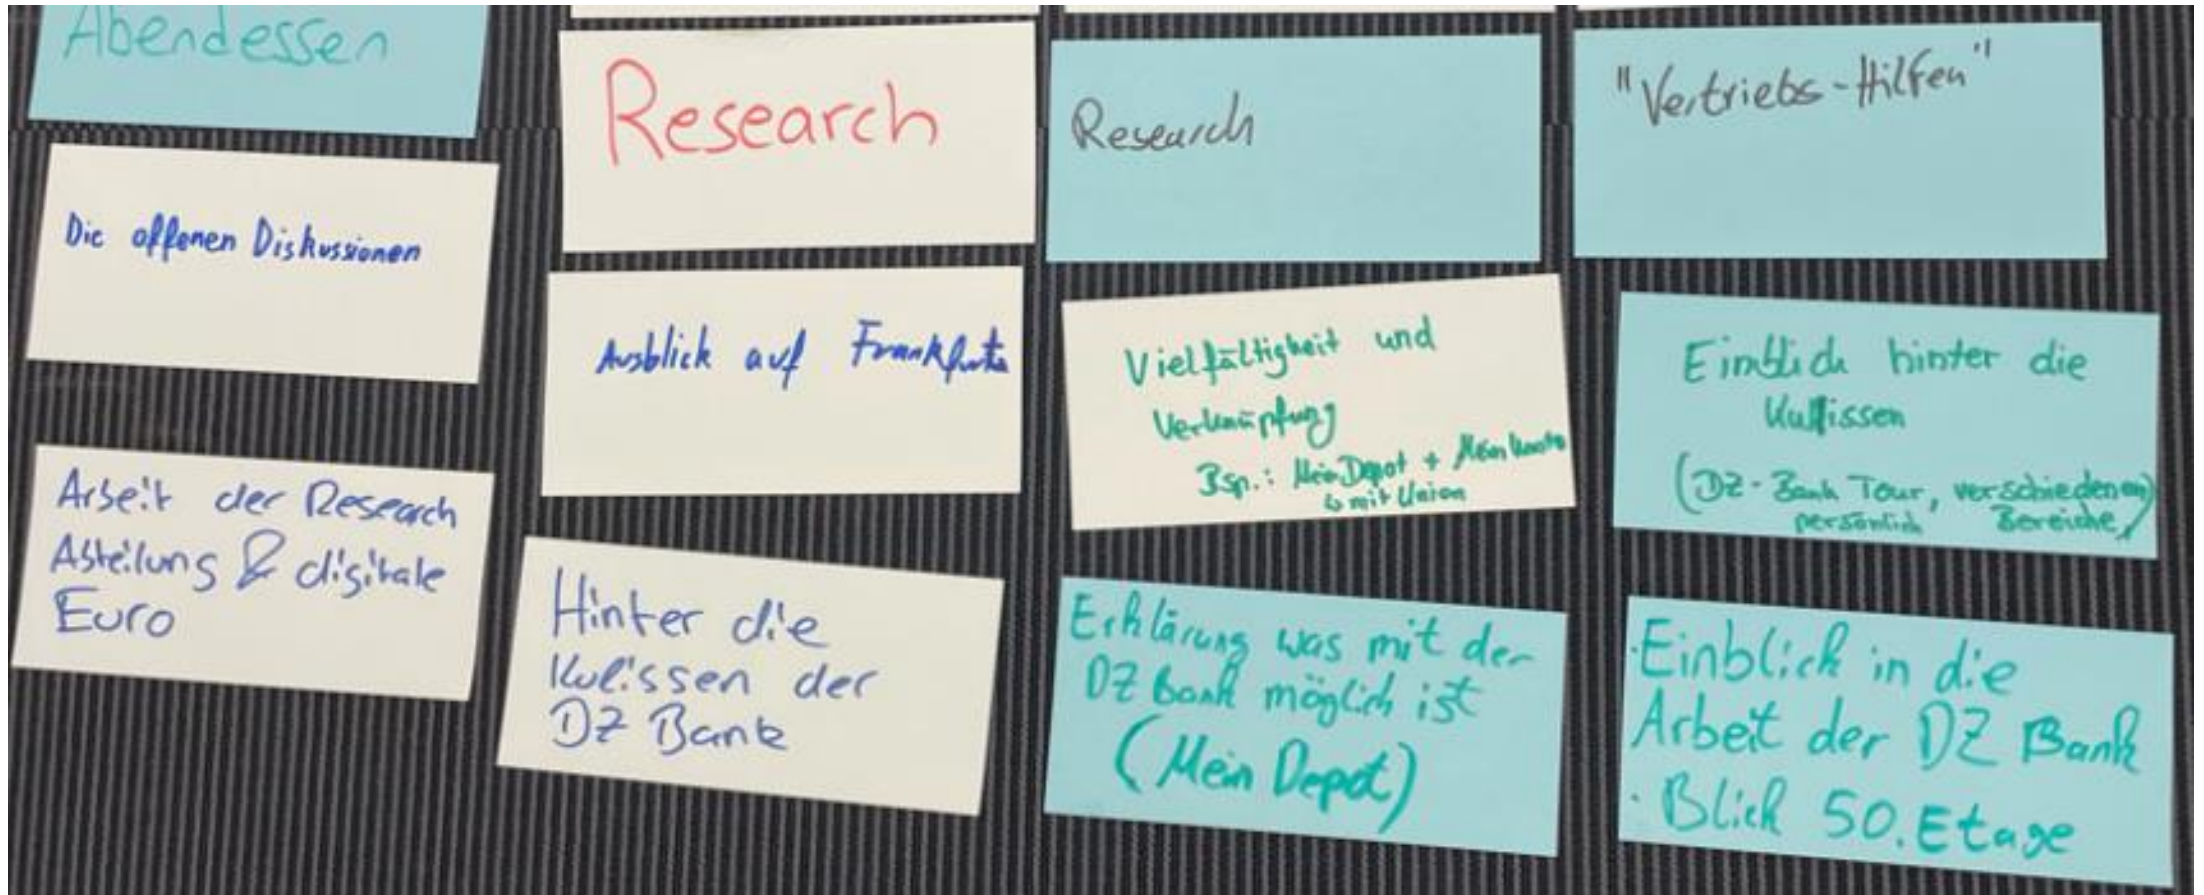 Abendessen
Die offenen Diskussionen
Arbeit der Research
Abteilung & digitale
Euro
Research
Ausblick auf Frankfurt
Hinter die
Kulissen der
DZ Bank
Research
Vielfältigkeit und
Verknüpfung
Bsp.: MeinDepot + Mein Konto
↳ mit Union
Erklärung was mit der
DZ Bank möglich ist
(Mein Depot)
"Vertriebs-Hilfen"
Einblick hinter die
Kulissen
(DZ-Bank Tour, verschiedenen
persönlich Bereiche)
· Einblick in die
Arbeit der DZ Bank
· Blick 50. Etage